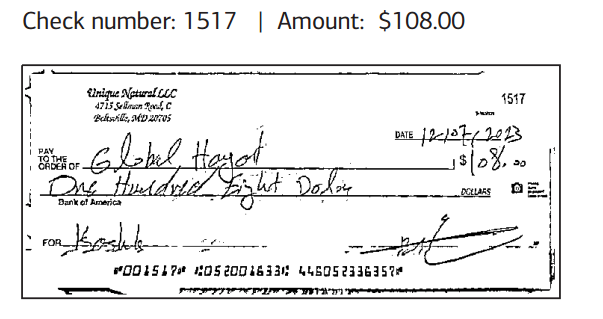 Check number: 1517 | Amount: $108.00
Unique Natural LLC
4715 Sellman Road, C
Beltsville, MD 20705
1517
DATE 12/07/2023
PAY TO THE ORDER OF Global Hayat $108.00
One Hundred Eight Dolar DOLLARS
Bank of America
FOR
⑈001517⑈ ⑆052001633⑆ 446052336357⑈